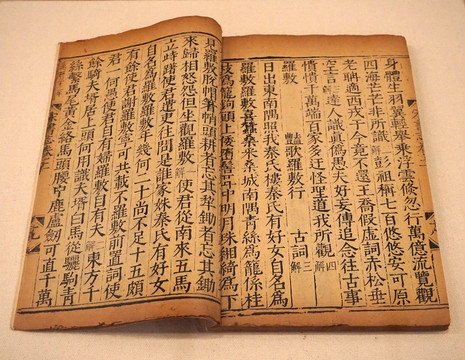 身體生羽翼輕舉乘浮雲倏忽行萬億流覽觀
四海茫茫非所識解彭祖稱七百悠悠安可原
老聃適西戎于今竟不還王喬假虛詞赤松垂
空言解達人識真僞愚夫好妄傳追念往古事
憒憒千萬端百家多迂怪聖道我所觀解四
羅敷 豔歌羅敷行 古詞解
日出東南隅照我秦氏樓秦氏有好女自名爲
羅敷羅敷喜蠶桑采桑城南隅青絲爲籠係桂
枝爲籠鉤頭上倭墮髻耳中明月珠緗綺爲下
見羅敷脫帽著帩頭耕者忘其犁鋤者忘其鋤
來歸相怒怨但坐觀羅敷解使君從南來五馬
立踟躕使君遣吏往問是誰家姝秦氏有好女
自名爲羅敷羅敷年幾何二十尚不足十五頗
有餘使君謝羅敷寧可共載不羅敷前置詞使
君一何愚使君自有婦羅敷自有夫解東方千
餘騎夫壻居上頭何用識夫壻白馬從驪駒青
絲繫馬尾黃金絡馬頭腰中鹿盧劒可直千萬